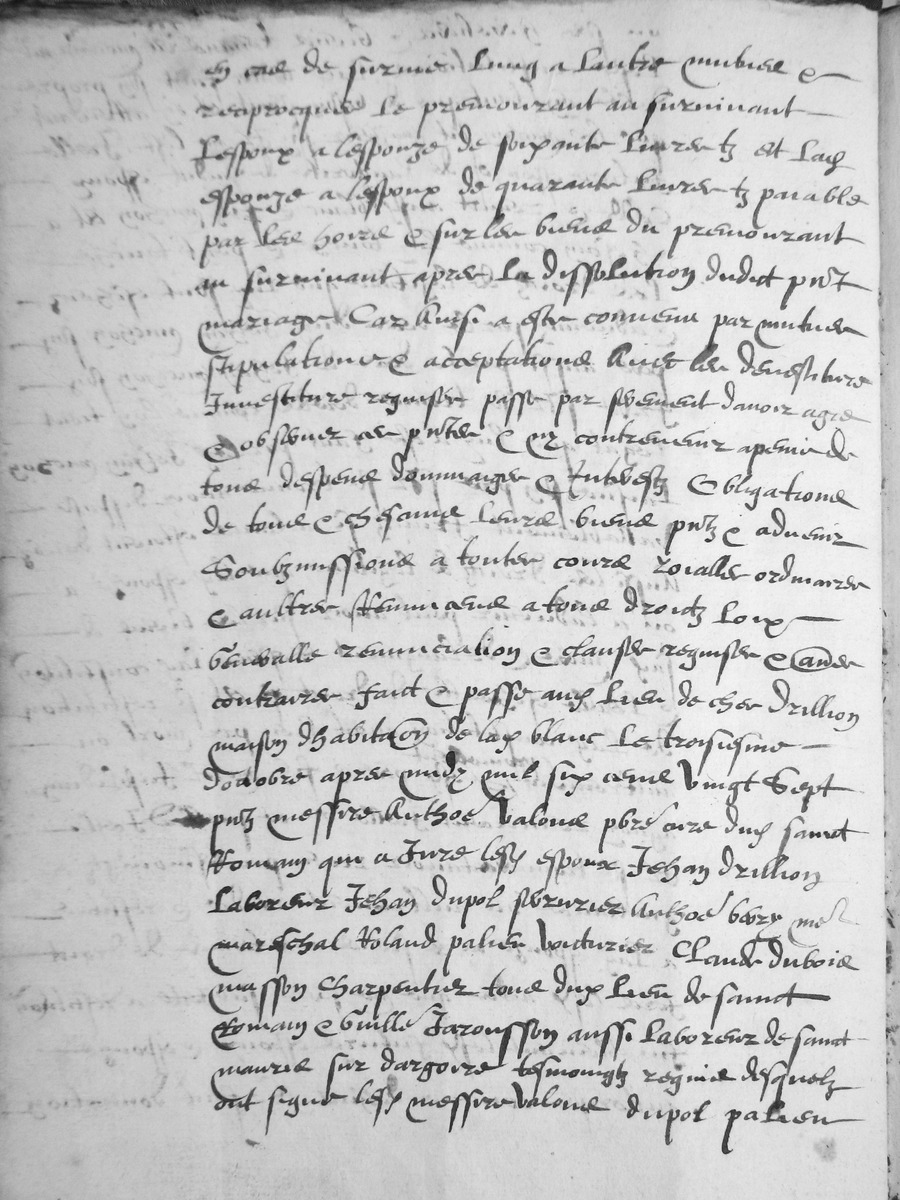 en cas de survie lung a lautre mutuel &
reciprocques le premourant au survivant
Lespoux a lespouze de soixante livres tz et lad
espouze a lespoux de quarante livres tz paiable
par les hoirs & sur les biens du premourant
au survivant apres la dissolution dudict pnt
mariage Car Ainsi a este convenu par mutues
stipulations & acceptations Avec les devestiture
Investiture requises passe par serement davoir agre
& observer ces pntes & ny contrevenir a peine de
tous despens dommaiges & Interestz Obligations
de tous & chescuns leurs biens pntz & advenir
Soubzmissions a toutes cours roialles ordinaires
& aultres Renuncens a tous droictz Loix
Generalle renunciation & clauses requises &
contraires faict & passe aud lieu de ches drillion
maison dhabitaon de lad blanc Le troisiesme
doctobre apres midy mil six cens vingt Sept
pntz messire Anthoe valous pbre cure dud sainct
Romain qui a Jure lesd espoux Jehan drillion
Laboreur Jehan dupol serurier Anthoe bery me
mareschal Roland palieu voiturier Claude dubois
masson Charpentier tous dud lieu de sainct
Romain & Guille Jarousson aussi laboreur de sainct
mauris sur dargoire tesmoingtz requis desquelz
ont signe lesd messire valous dupol palieu